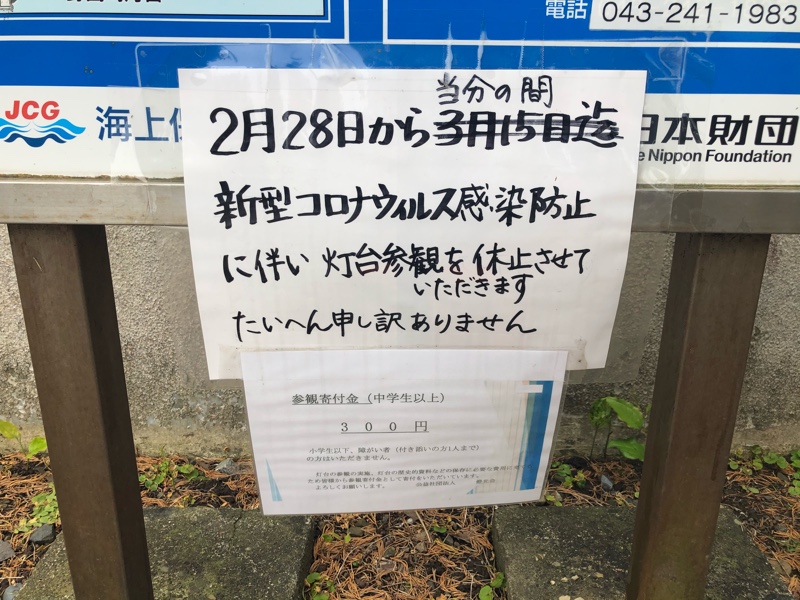 電話 043-241-1983
JCG 海上
日本財団
e Nippon Foundation
当分の間
2月28日から3月15日迄
新型コロナウィルス感染防止
に伴い 灯台参観を休止させて
いただきます
たいへん申し訳ありません
参観寄付金(中学生以上)
300 円
小学生以下、障がい者(付き添いの方1人まで)
の方はいただきません。
灯台の参観の実施、灯台の歴史的資料などの保存に必要な費用に
ため皆様から参観寄付金として寄付をいただいています。
よろしくお願いします。 公益社団法人